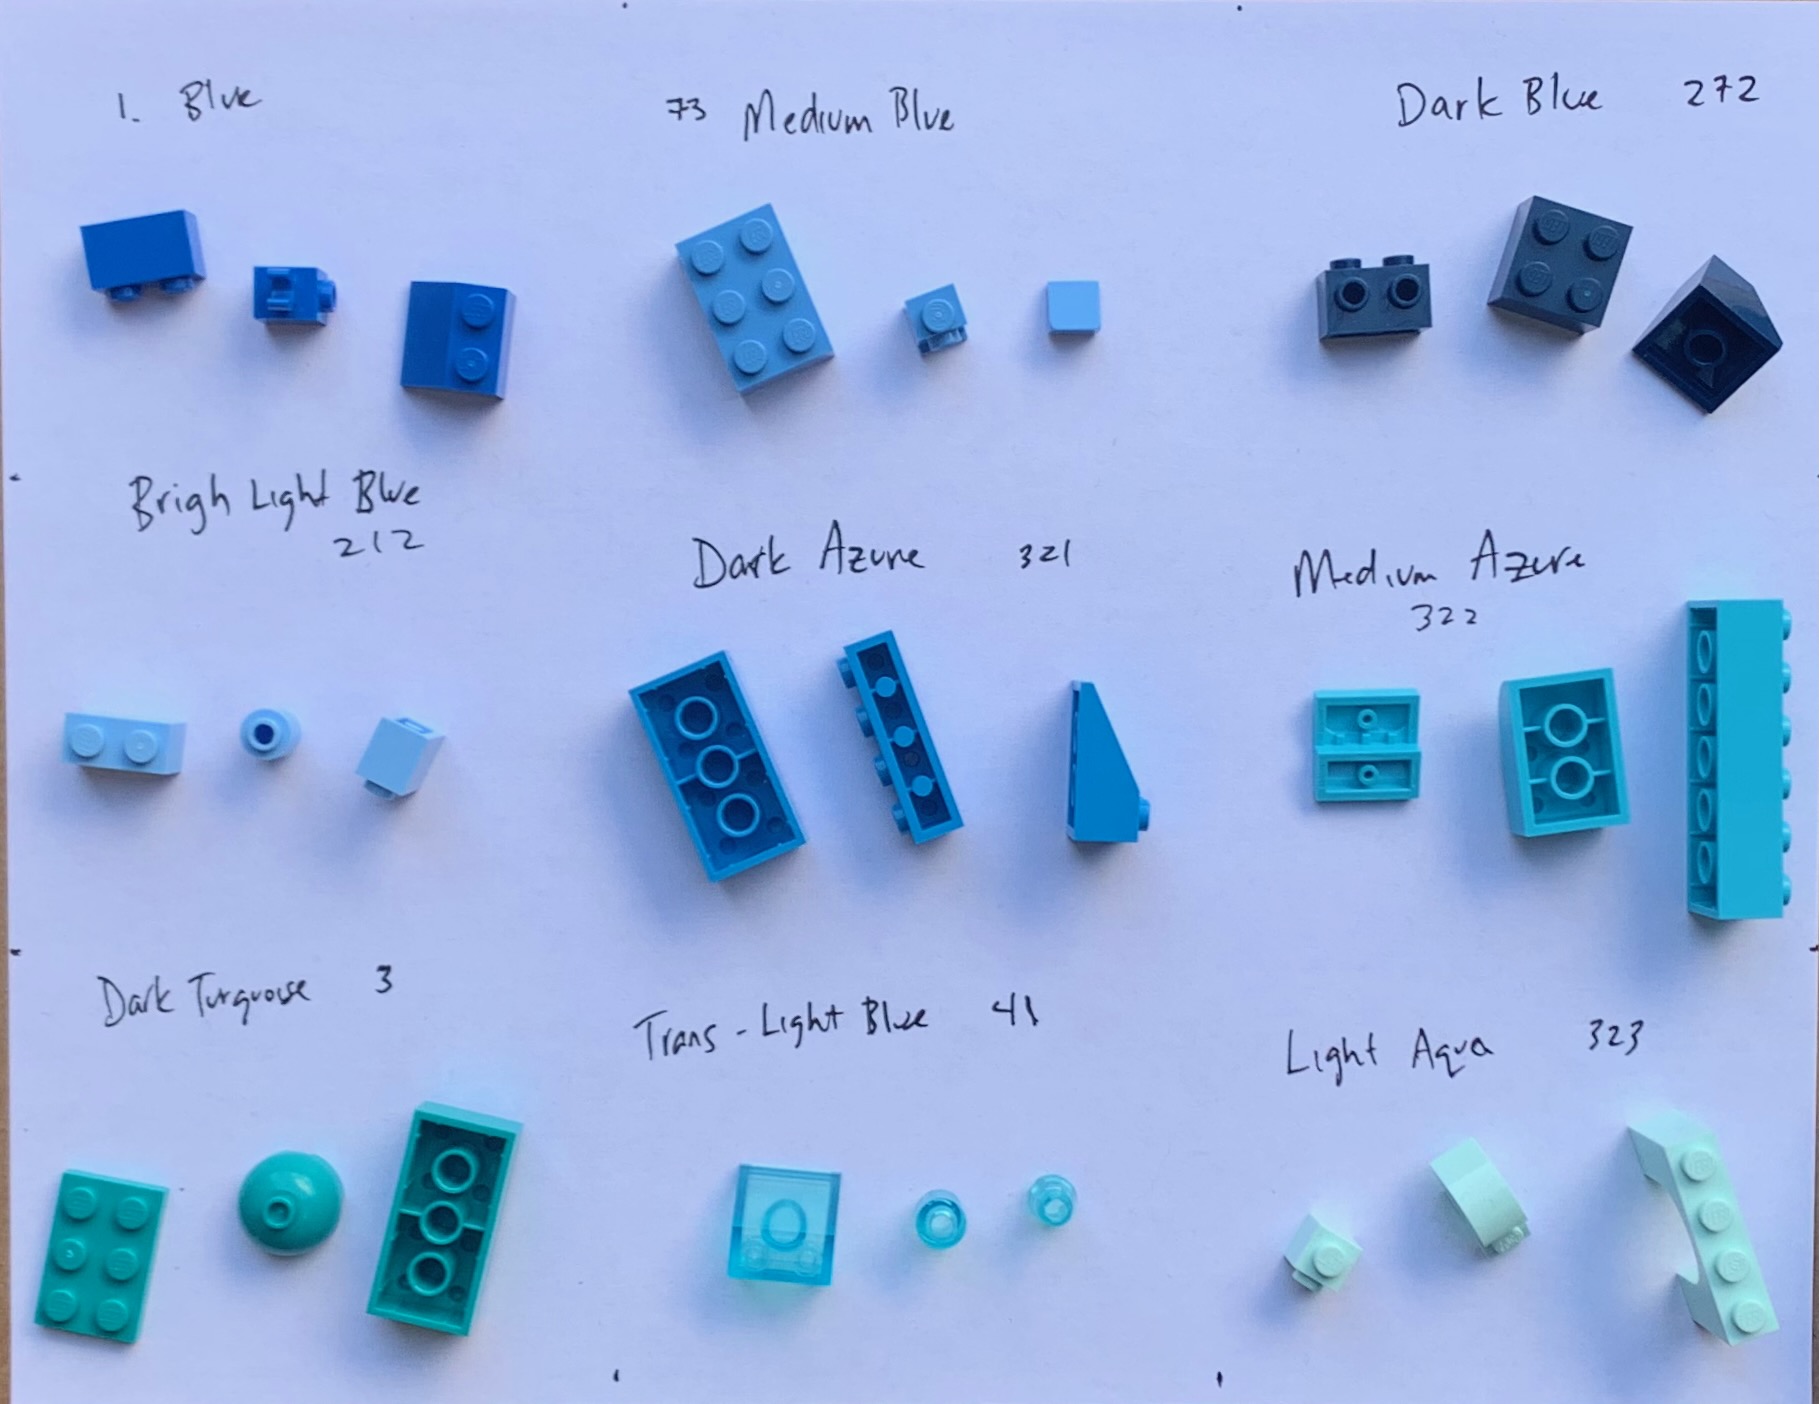 1. Blue
73 Medium Blue
Dark Blue 272
Brigh Light Blue
212
Dark Azure 321
Medium Azure
322
Dark Turquoise 3
Trans - Light Blue 41
Light Aqua 323